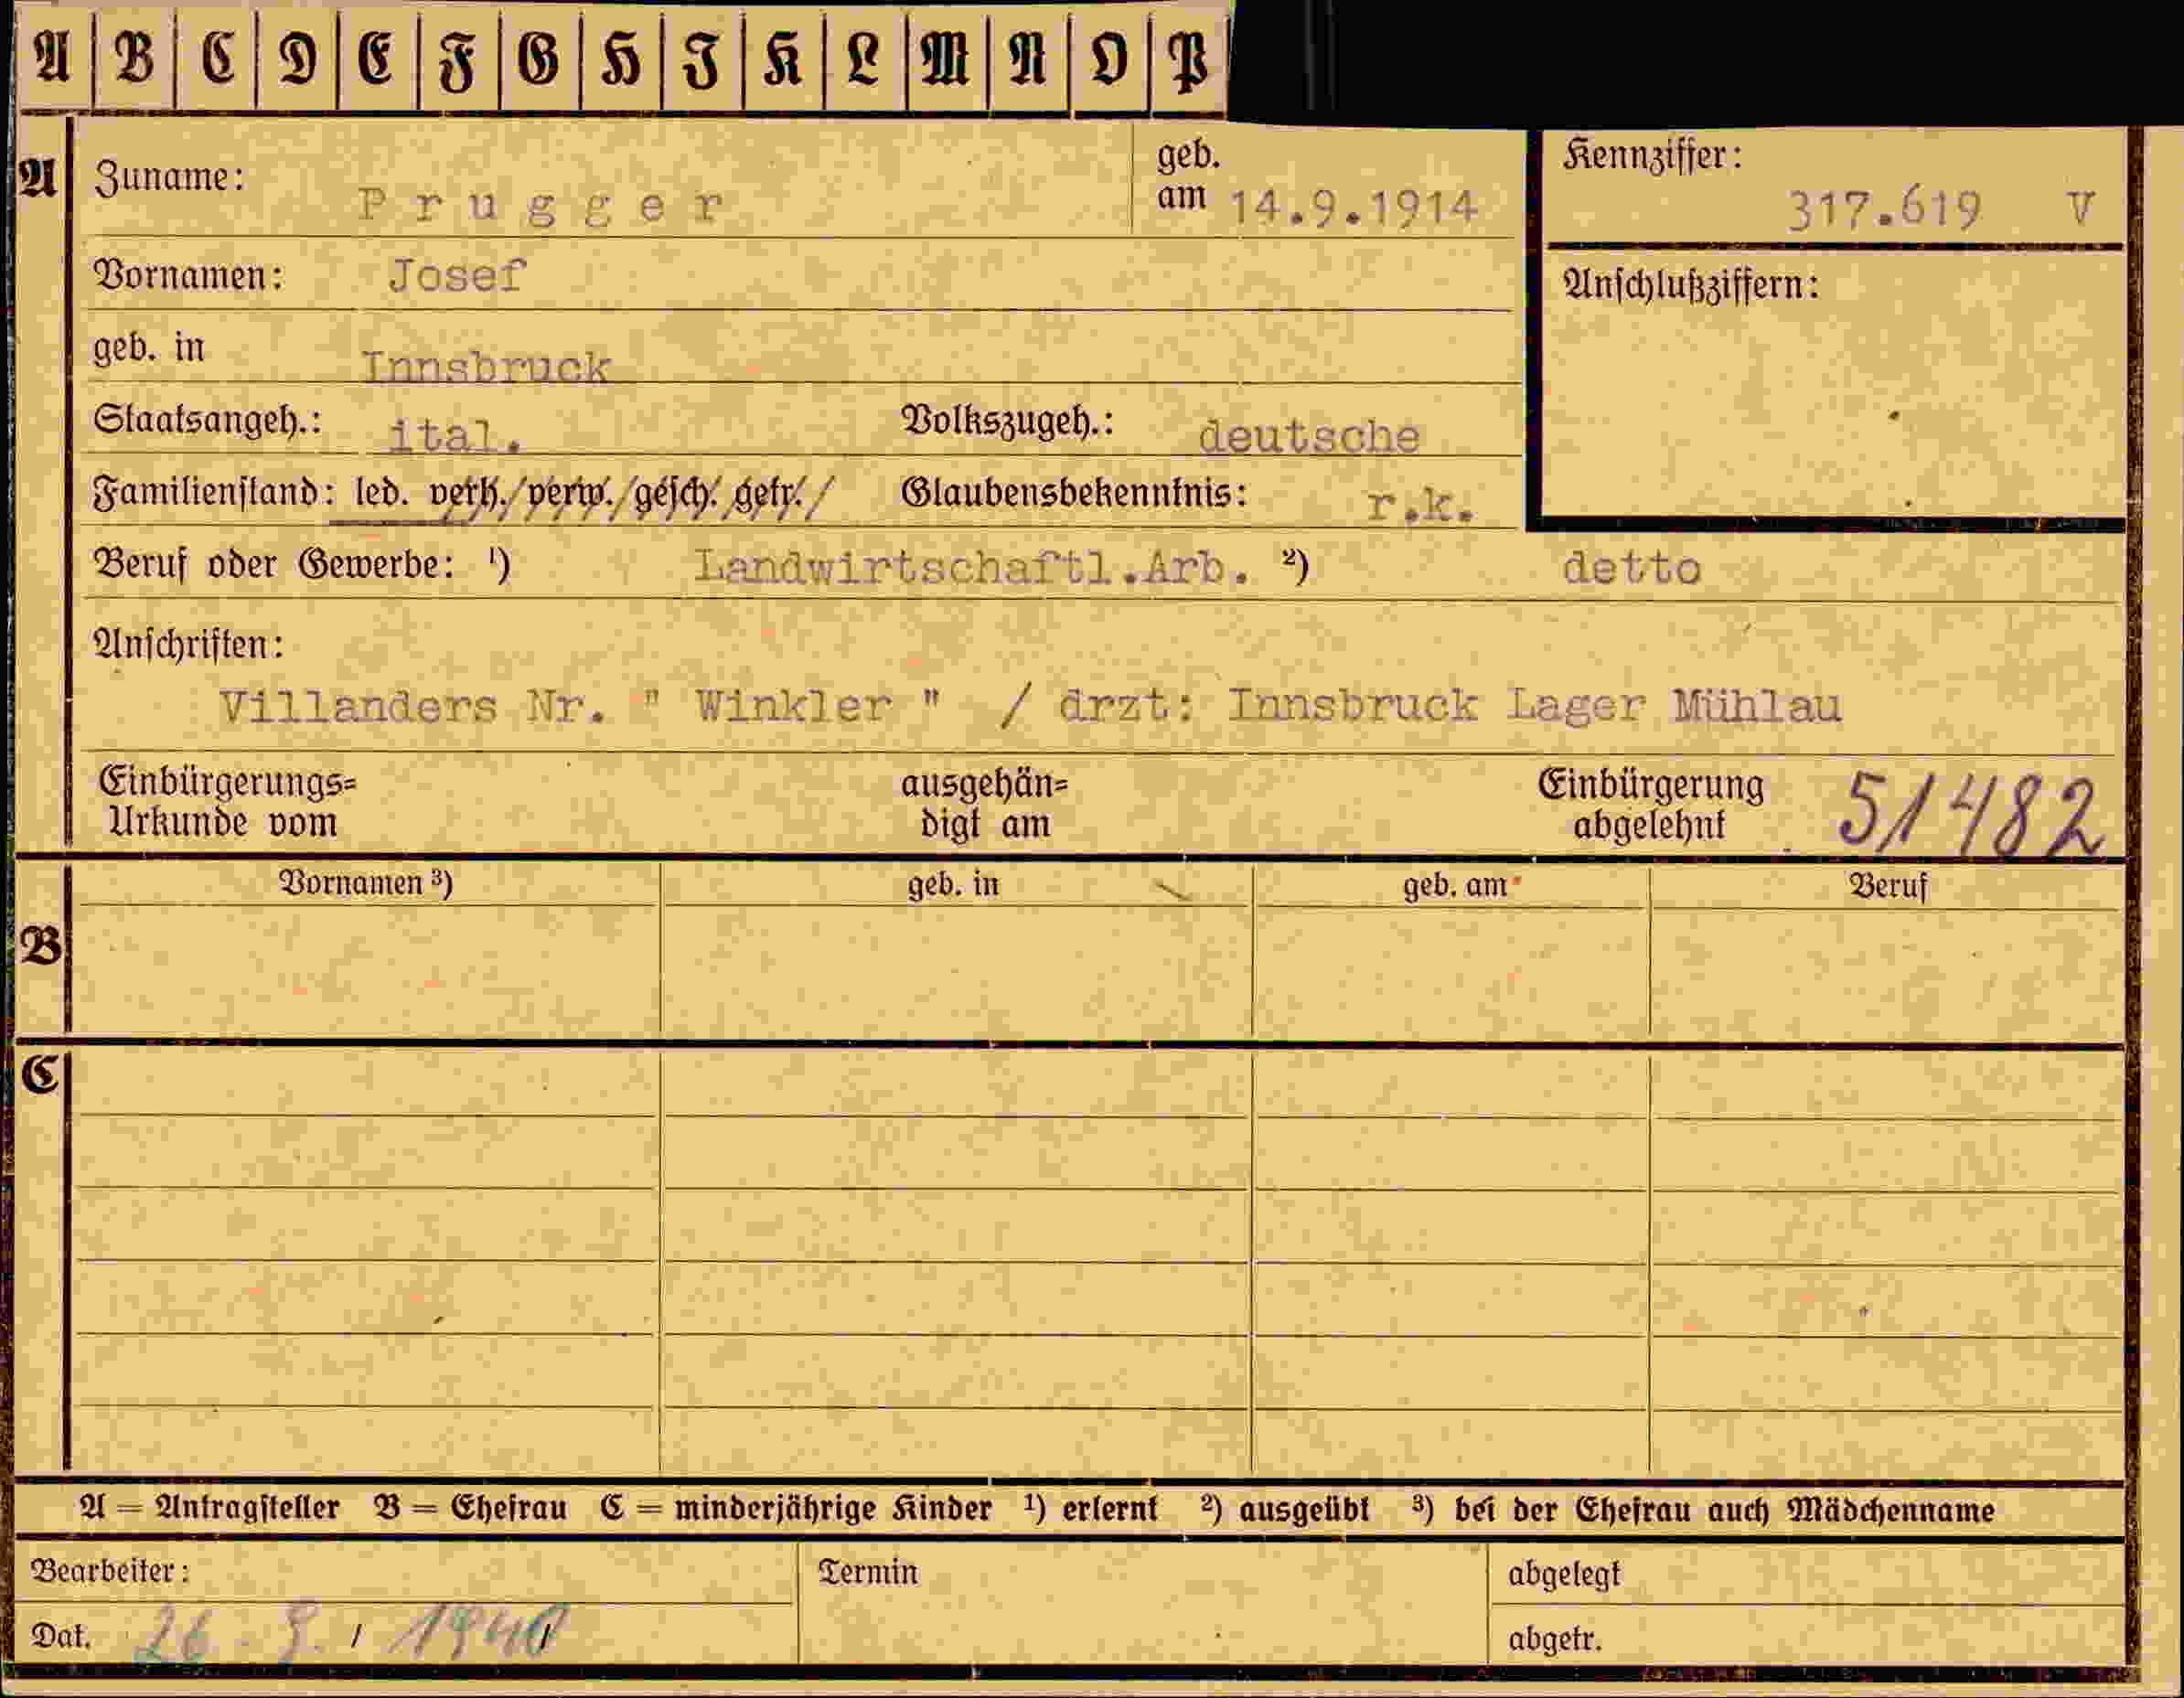 A B C D E F G H I K L M N O P
A Zuname: Prugger geb. am 14.9.1914 Kennziffer: 317.619 V
Vornamen: Josef Anschlußziffern:
geb. in Innsbruck
Staatsangeh.: ital. Volkszugeh.: deutsche
Familienstand: led. verh./verw./gesch./getr./ Glaubensbekenntnis: r.k.
Beruf oder Gewerbe: ¹) Landwirtschaftl.Arb. ²) detto
Anschriften:
Villanders Nr. " Winkler " / drzt: Innsbruck Lager Mühlau
Einbürgerungs= ausgehän= Einbürgerung 51482
Urkunde vom digt am abgelehnt
Vornamen ³) geb. in geb. am Beruf
B
C
A = Antragsteller B = Ehefrau C = minderjährige Kinder ¹) erlernt ²) ausgeübt ³) bei der Ehefrau auch Mädchenname
Bearbeiter: Termin abgelegt
Dat. 26. 9. / 1940 abgetr.